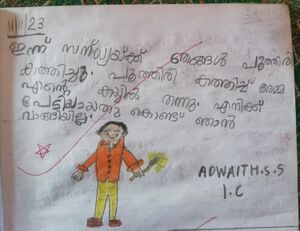 11/11/23
ഇന്ന് സന്ധ്യയ്ക്ക് ഞങ്ങൾ പൂത്തിരി
കത്തിച്ചു. പൂത്തിരി കത്തിച്ച് അമ്മ
എന്റെ കയ്യിൽ തന്നു. എനിക്ക്
പേടിയായതു കൊണ്ട് ഞാൻ
വാങ്ങിയില്ല.
ADWAITH.S.S
1.C